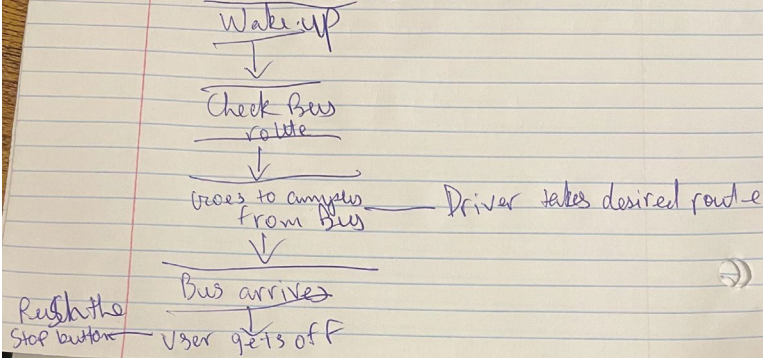 Wake up
Check Bus
route
Goes to campus
from Bus
Driver takes desired route
Bus arrives
Push the
Stop button
User gets off